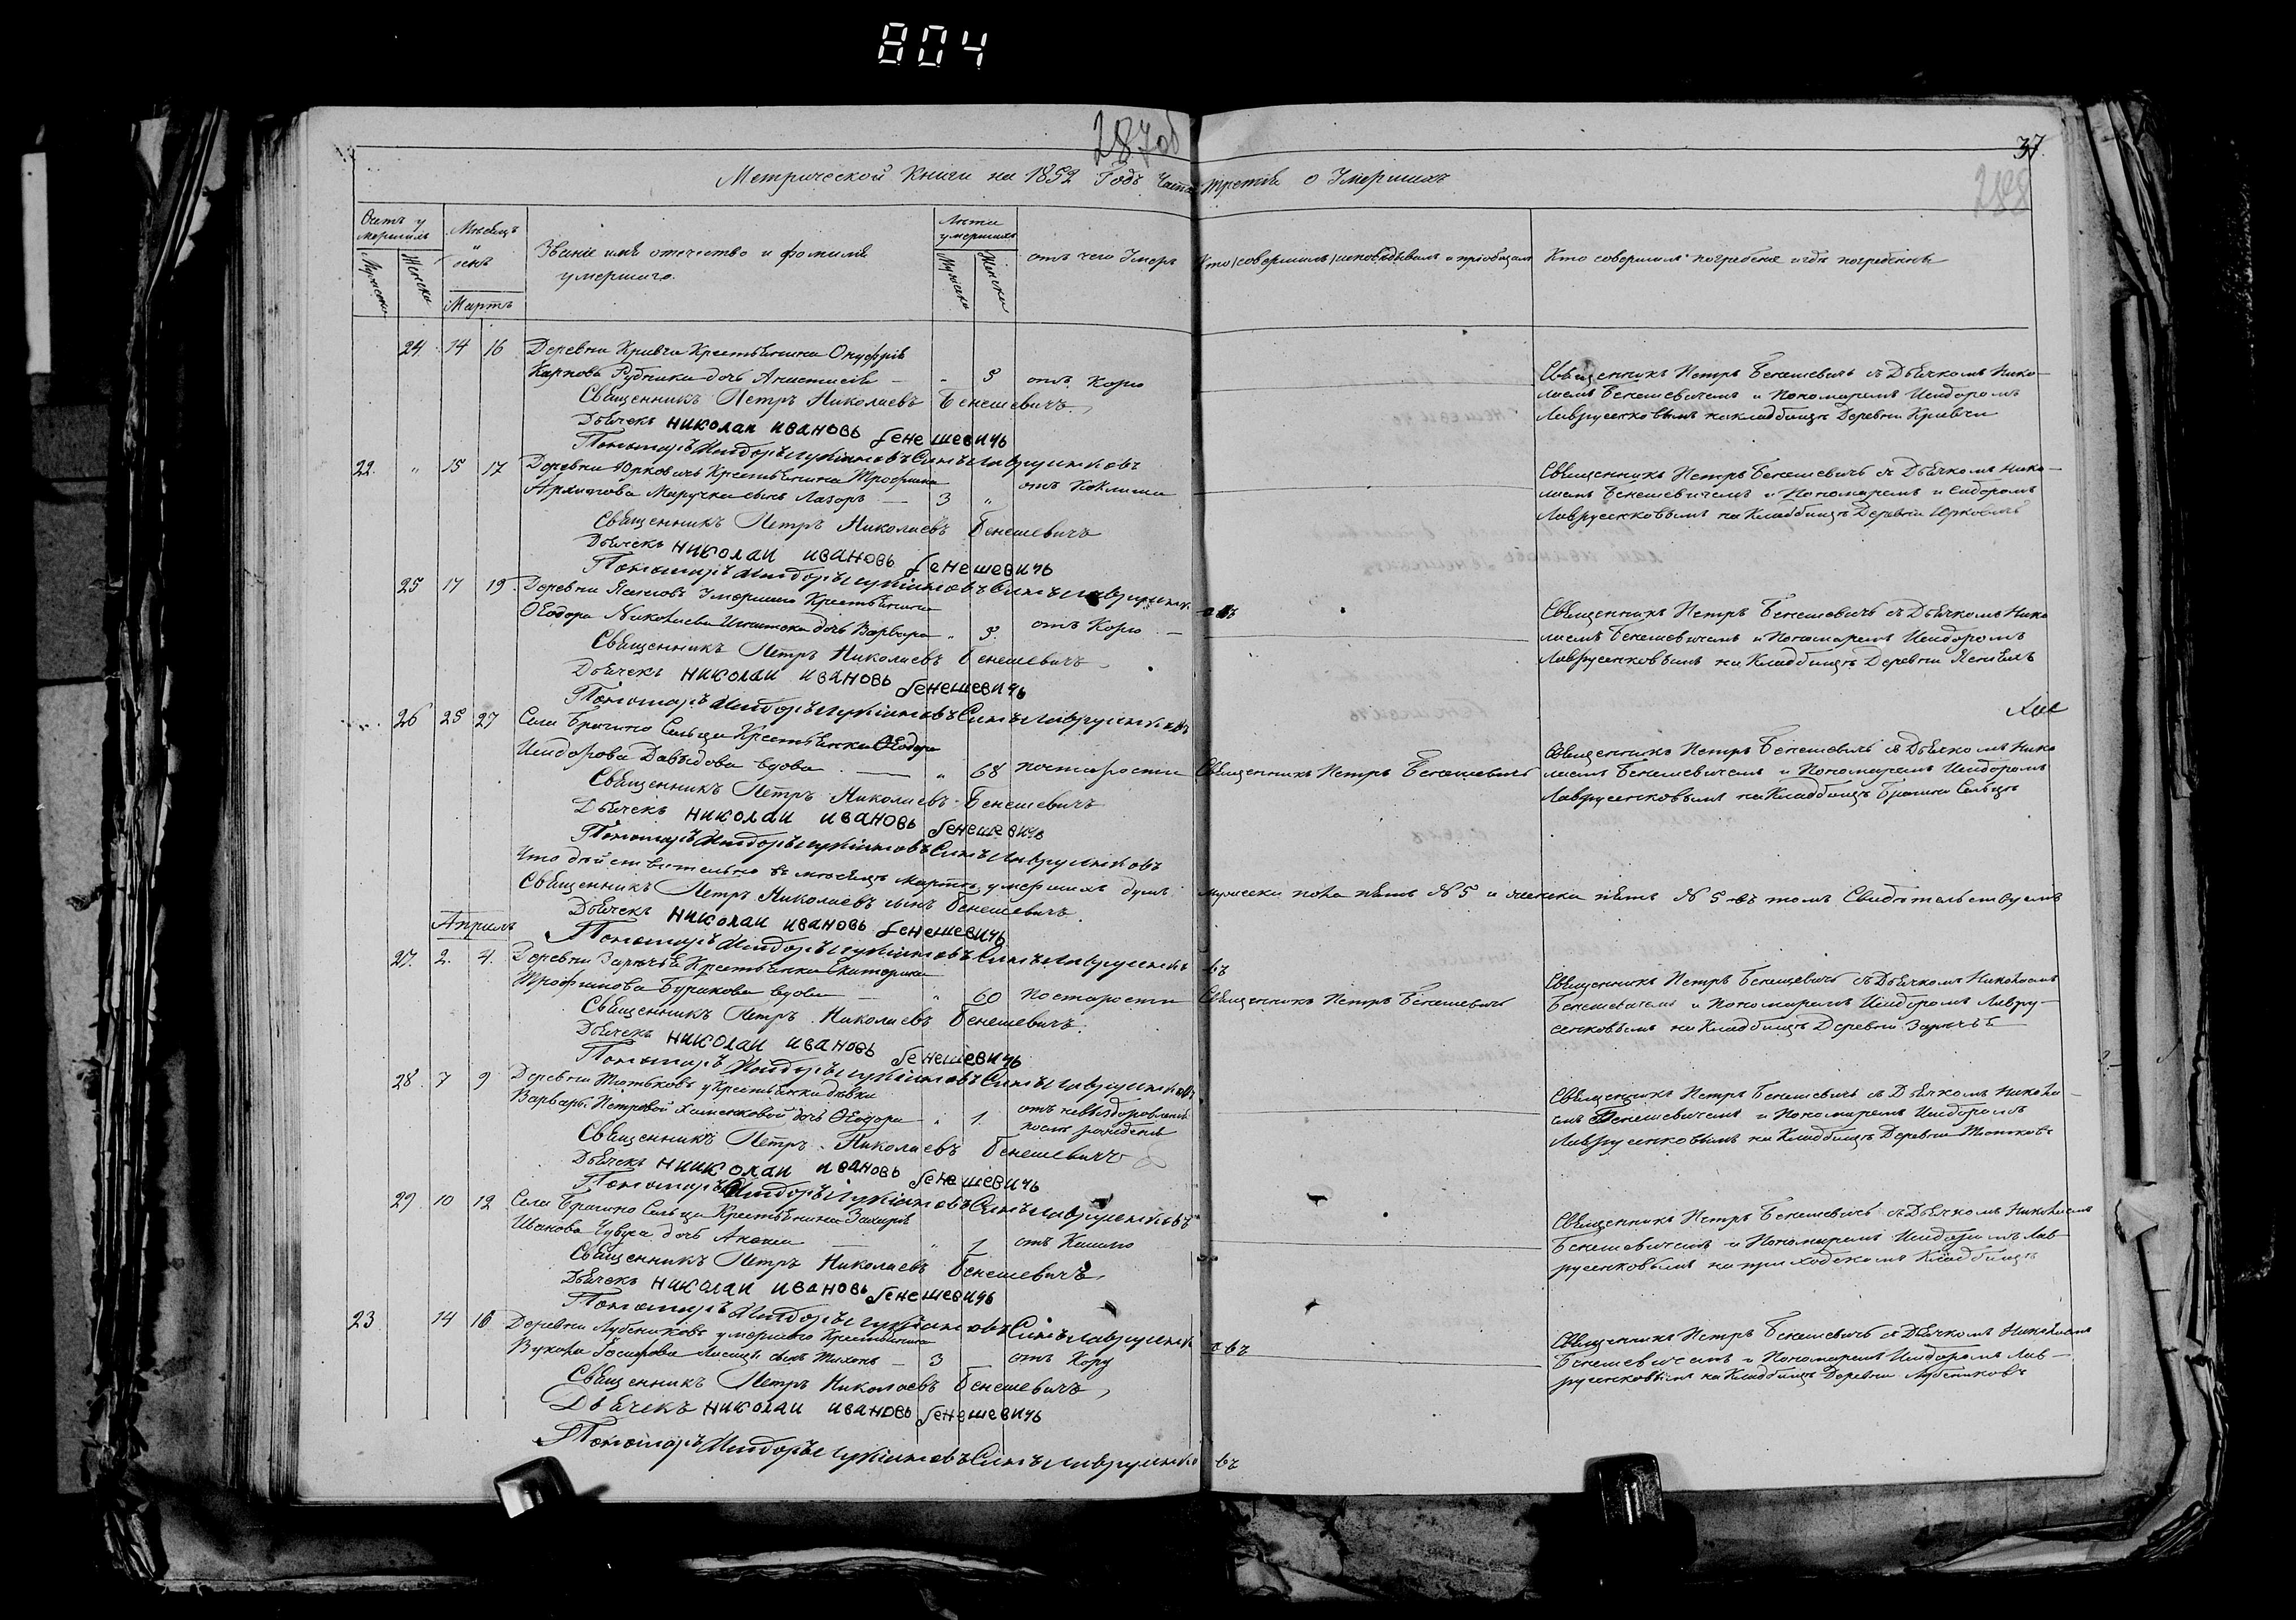 804
287об
37
288
Метрической Книги на 1852 Годъ Часть третія о Умершихъ
Счетъ у
мершихъ
Мужеска
Женска
Мѣсецъ
и
день
Мартъ
Званіе имя отечество и фамилія
умершаго.
Лѣта
умершихъ
Мужеска
Женска
отъ чего Умеръ
Кто исповѣдывалъ и пріобщалъ
Кто совершилъ погребеніе и гдѣ погребенъ
24. 14 16 Деревни Кривча Крестьянина Онуфрія
Карпова Рудника дочь Анастасія — " 3 отъ Корю
Священникъ Петръ Николаевъ Бенешевичъ
Дьячекъ николаи ивановь бенешевичь
Пономарь Исидоръ Лукіановъ Сынъ Лаврусенковъ
Священникъ Петръ Бенешевичь съ Дьячкомъ Нико-
лаемъ Бенешевичемъ и Пономаремъ Исидоромъ
Лаврусенковымъ на кладбищѣ Деревни Кривчи
22. " 15 17 Деревни Юрковичь Крестьянина Трофима
Архипова Маручка сынъ Лазорь — 3 " отъ Коклюша
Священникъ Петръ Николаевъ Бенешевичъ
Дьячекъ николаи ивановь бенешевичь
Пономарь Исидоръ Лукіановъ Сынъ Лаврусенковъ
Священникъ Петръ Бенешевичь съ Дьячкомъ Нико-
лаемъ Бенешевичемъ и Пономаремъ Исидоромъ
Лаврусенковымъ на Кладбищѣ Деревни Юрковичь
25 17 19. Деревни умершаго Крестьянина
Ѳеодора Николаева дочь Варвара " 3. отъ Корю —
Священникъ Петръ Николаевъ Бенешевичъ
Дьячекъ николаи ивановь бенешевичь
Пономарь Исидоръ Лукіановъ Сынъ Лаврусенковъ
Священникъ Петръ Бенешевичь съ Дьячкомъ Нико
лаемъ Бенешевичемъ и Пономаремъ Исидоромъ
Лаврусенковымъ на Кладбищѣ Деревни
26 25 27 Села Брагина Сельца Крестьянка Ѳеодора
Исидорова Давыдова вдова — " 68 по старости Священникъ Петръ Бенешевичь
Священникъ Петръ Николаевъ Бенешевичъ
Дьячекъ николаи ивановь бенешевичь
Пономарь Исидоръ Лукіановъ Сынъ Лаврусенковъ
Священникъ Петръ Бенешевичь съ Дьячкомъ Нико
лаемъ Бенешевичемъ и Пономаремъ Исидоромъ
Лаврусенковымъ на Кладбищѣ Брагина Сельца
Что дѣйствительно въ мѣсяцѣ Мартѣ умершихъ душъ мужеска пола пять № 5 и женска пять № 5 въ томъ Свидѣтельствуемъ
Священникъ Петръ Николаевъ сынъ Бенешевичъ.
Дьячекъ николаи ивановь бенешевичь
Пономарь Исидоръ Лукіановъ Сынъ Лаврусенковъ
Апрель
27. 2. 4. Деревни Заречья Крестьянка Екатерина
Трофимова Буракова вдова — " 60 по старости Священникъ Петръ Бенешевичь
Священникъ Петръ Николаевъ Бенешевичъ.
Дьячекъ николаи ивановь бенешевичь
Пономарь Исидоръ Лукіановъ Сынъ Лаврусенковъ
Священникъ Петръ Бенешевичь съ Дьячкомъ Николаемъ
Бенешевичемъ и Пономаремъ Исидоромъ Лавру-
сенковымъ на Кладбищѣ Деревни Заречья
28. 7 9 Деревни Тютьковъ у Крестьянки дѣвки
Варвары Петровой Хоменковой дочь Ѳеодора " 1. отъ
послѣ рожденія
Священникъ Петръ Николаевъ Бенешевичъ
Дьячекъ николаи ивановь бенешевичь
Пономарь Исидоръ Лукіановъ Сынъ Лаврусенковъ
Священникъ Петръ Бенешевичь съ Дьячкомъ Никола-
емъ Бенешевичемъ и Пономаремъ Исидоромъ
Лаврусенковымъ на Кладбищѣ Деревни Тютьковъ
29. 10 12 Села Брагина Сельца Крестьянина Захарія
Иванова дочь " 1 отъ Кашлю
Священникъ Петръ Николаевъ Бенешевичъ
Дьячекъ николаи ивановь бенешевичь
Пономарь Исидоръ Лукіановъ Сынъ Лаврусенковъ
Священникъ Петръ Бенешевичь съ Дьячкомъ Николаемъ
Бенешевичемъ и Пономаремъ Исидоромъ Лав-
русенковымъ на приходскомъ Кладбищѣ
23. 14 16 Деревни Лубениковъ умершаго Крестьянина
Вукола сынъ Тихонъ — 3 отъ Кору
Священникъ Петръ Николаевъ Бенешевичъ
Дьячекъ николаи ивановь бенешевичь
Пономарь Исидоръ Лукіановъ Сынъ Лаврусенковъ
Священникъ Петръ Бенешевичь съ Дьячкомъ Николаемъ
Бенешевичемъ и Пономаремъ Исидоромъ Лав-
русенковымъ на Кладбищѣ Деревни Лубениковъ